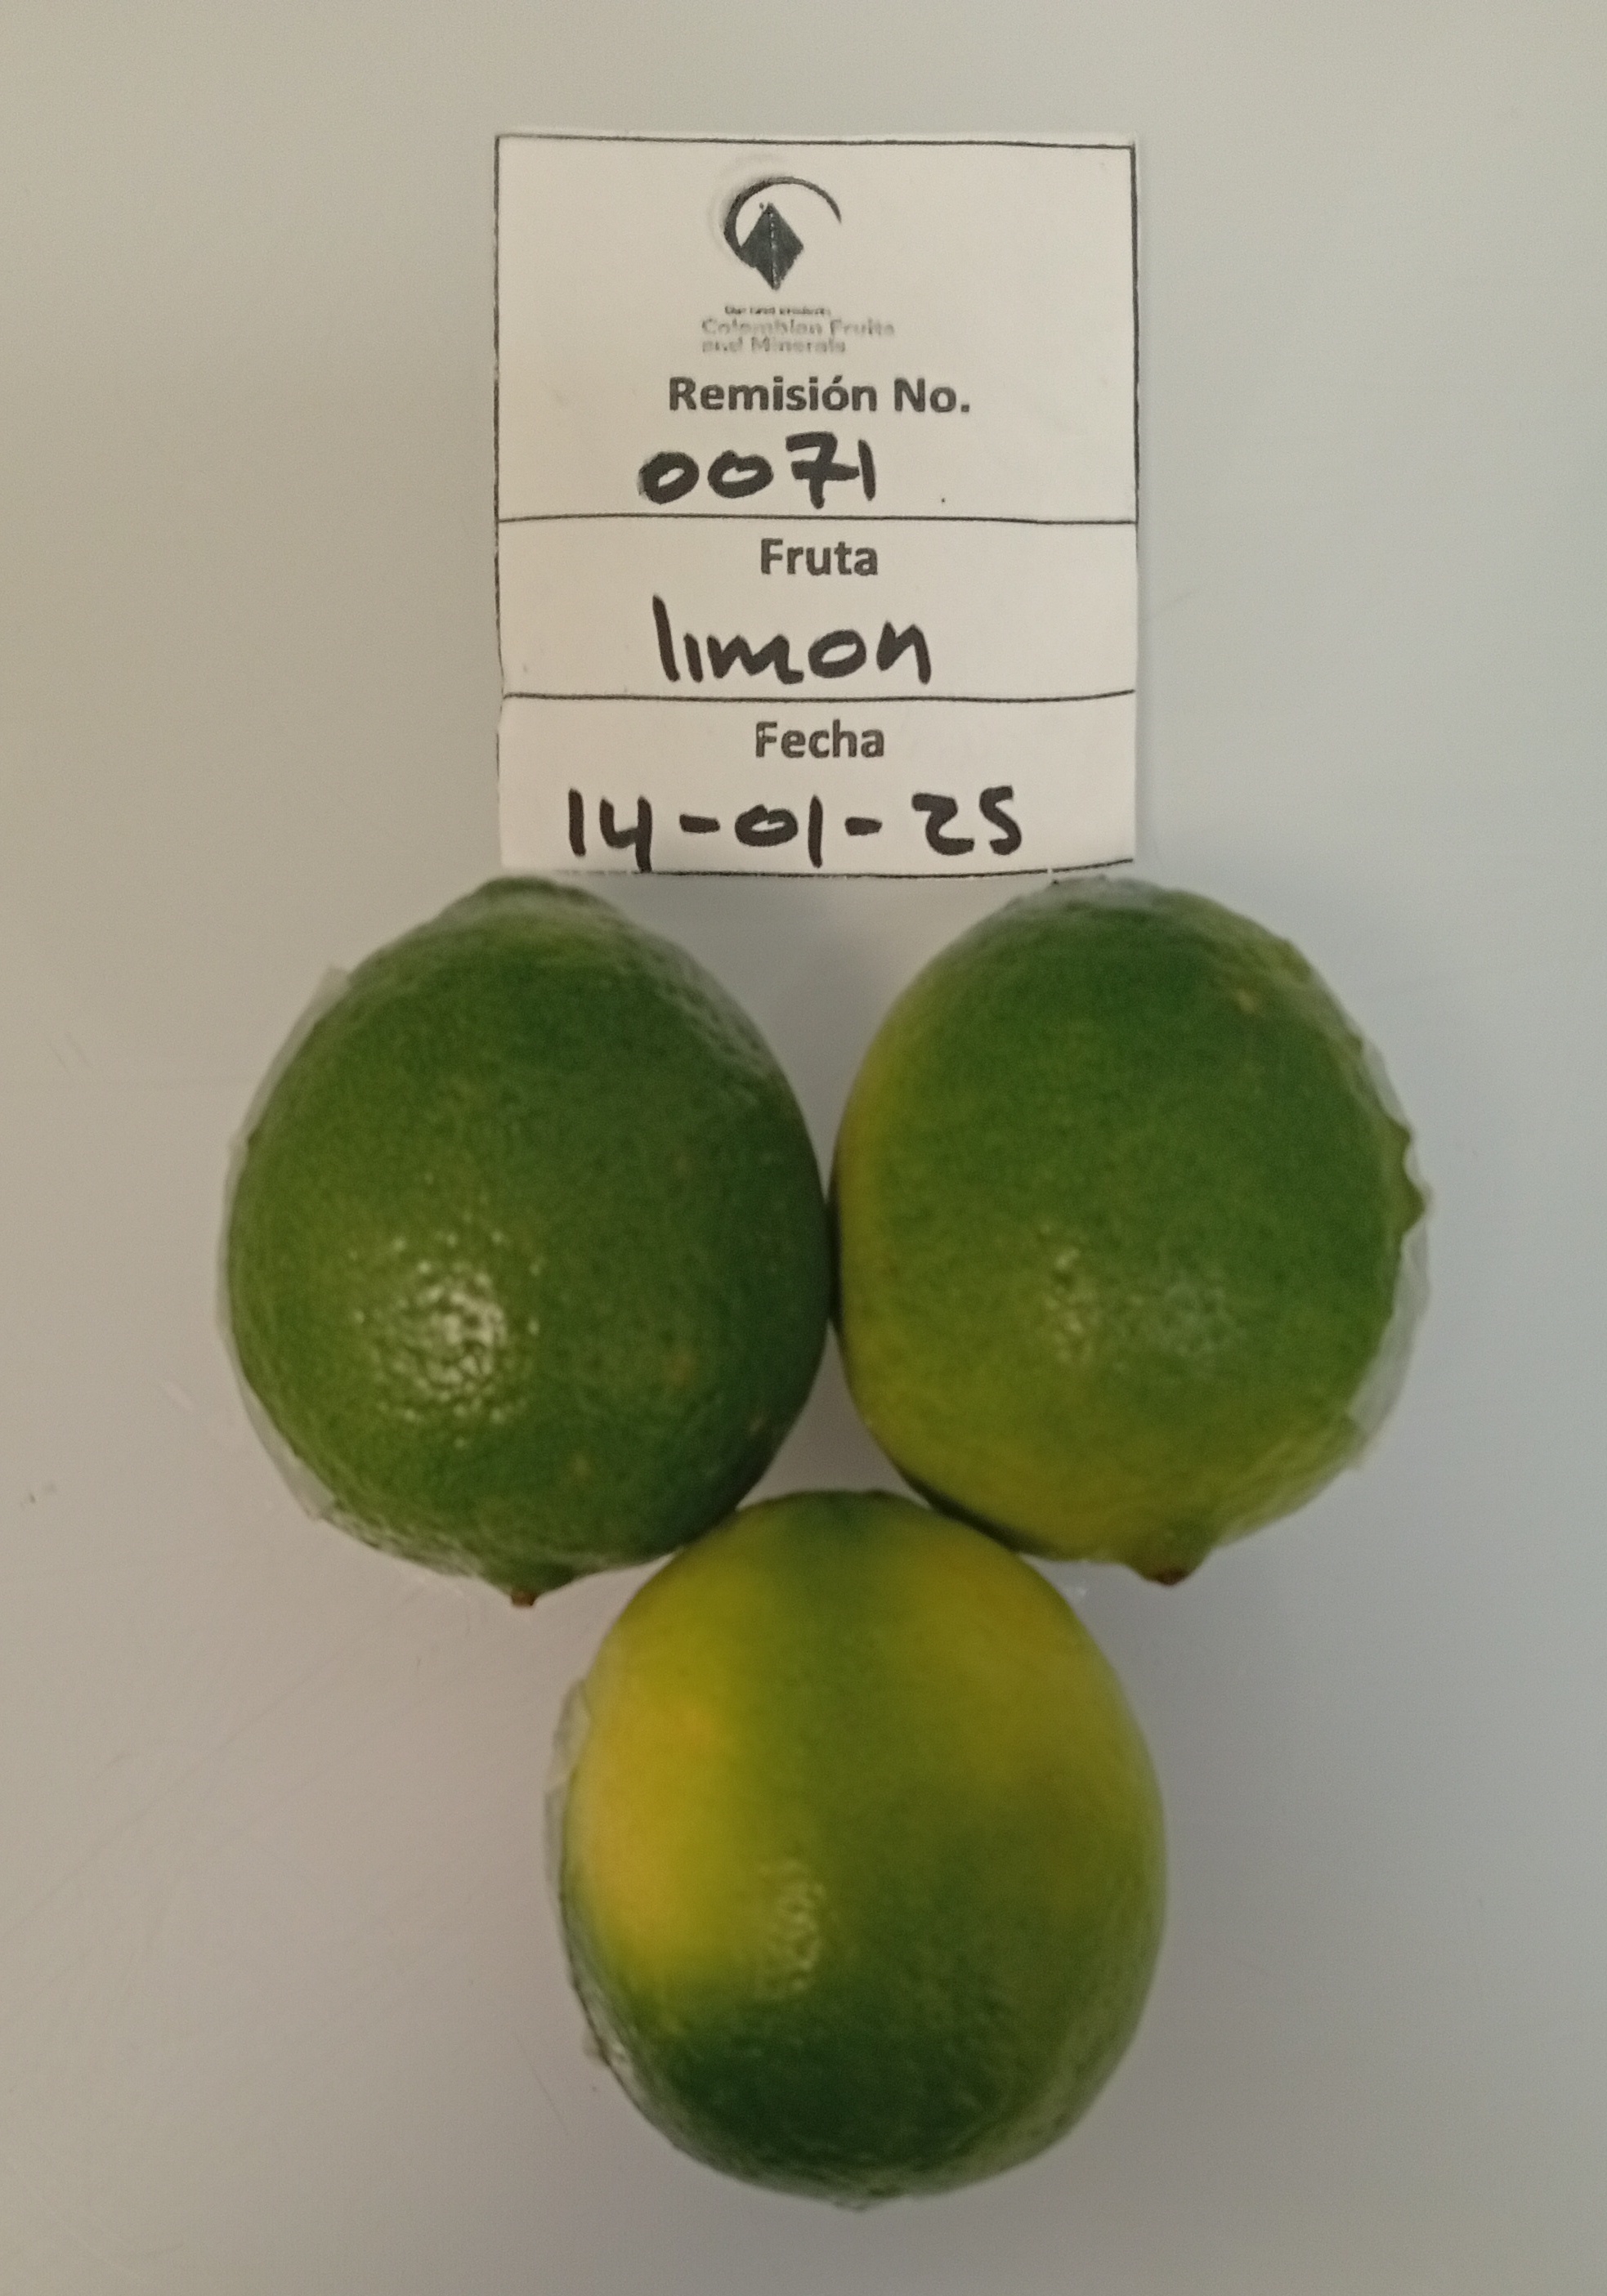 Our land products
Colombian Fruits
and Minerals
Remisión No.
0071
Fruta
limon
Fecha
14-01-25